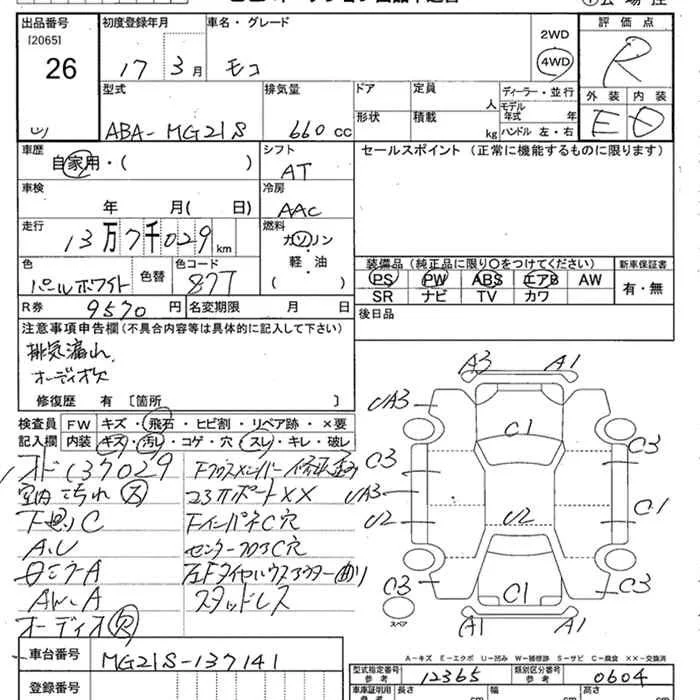 出品番号 初度登録年月 車名・グレード 2WD 評価点
[2065] 26 17 3月 モコ 4WD R
型式 排気量 ドア 定員 人 ディーラー・並行 外装 内装
ABA-MG21S 660cc 形状 積載 kg モデル年式 年 ハンドル 左・右 E D
車歴 自家用・( ) シフト AT セールスポイント (正常に機能するものに限ります)
車検 年 月( 日) 冷房 AAC
走行 13万7千029km 燃料 ガソリン 軽・油 ( )
色 パールホワイト 色替 色コード Z7T
装備品 (純正品に限り○をつけてください) 新車保証書
PS PW ABS エアB AW 有・無
SR ナビ TV カワ
R券 9570円 名変期限 月 日 後日品
注意事項申告欄 (不具合内容等は具体的に記入して下さい)
排気漏れ
オーディオ欠
修復歴 有 〔箇所 〕
検査員 FW キズ・飛石・ヒビ割・リペア跡・×要
記入欄 内装 キズ・汚レ・コゲ・穴・スレ・キレ・破レ
オド137029
室内汚れ 大 コアサポートXX
下廻りC FインパネC穴
A.U センターフロアC穴
左ミラーA 左Fタイヤハウスアウター曲り
AW.A スタッドレス
オーディオR
A3 A1
UA3 C1
C3 C3
UA3 C1
U2 U2
C3 C1 C3
A1 A1
スペア
A-キズ E-エクボ U-凹み W-補修跡 S-サビ C-腐食 XX-交換済
車台番号 MG21S-137141
型式指定番号 参考 12365 類別区分番号 参考 0604
登録番号 車庫証明用 参考 長さ cm 幅 cm 高さ cm